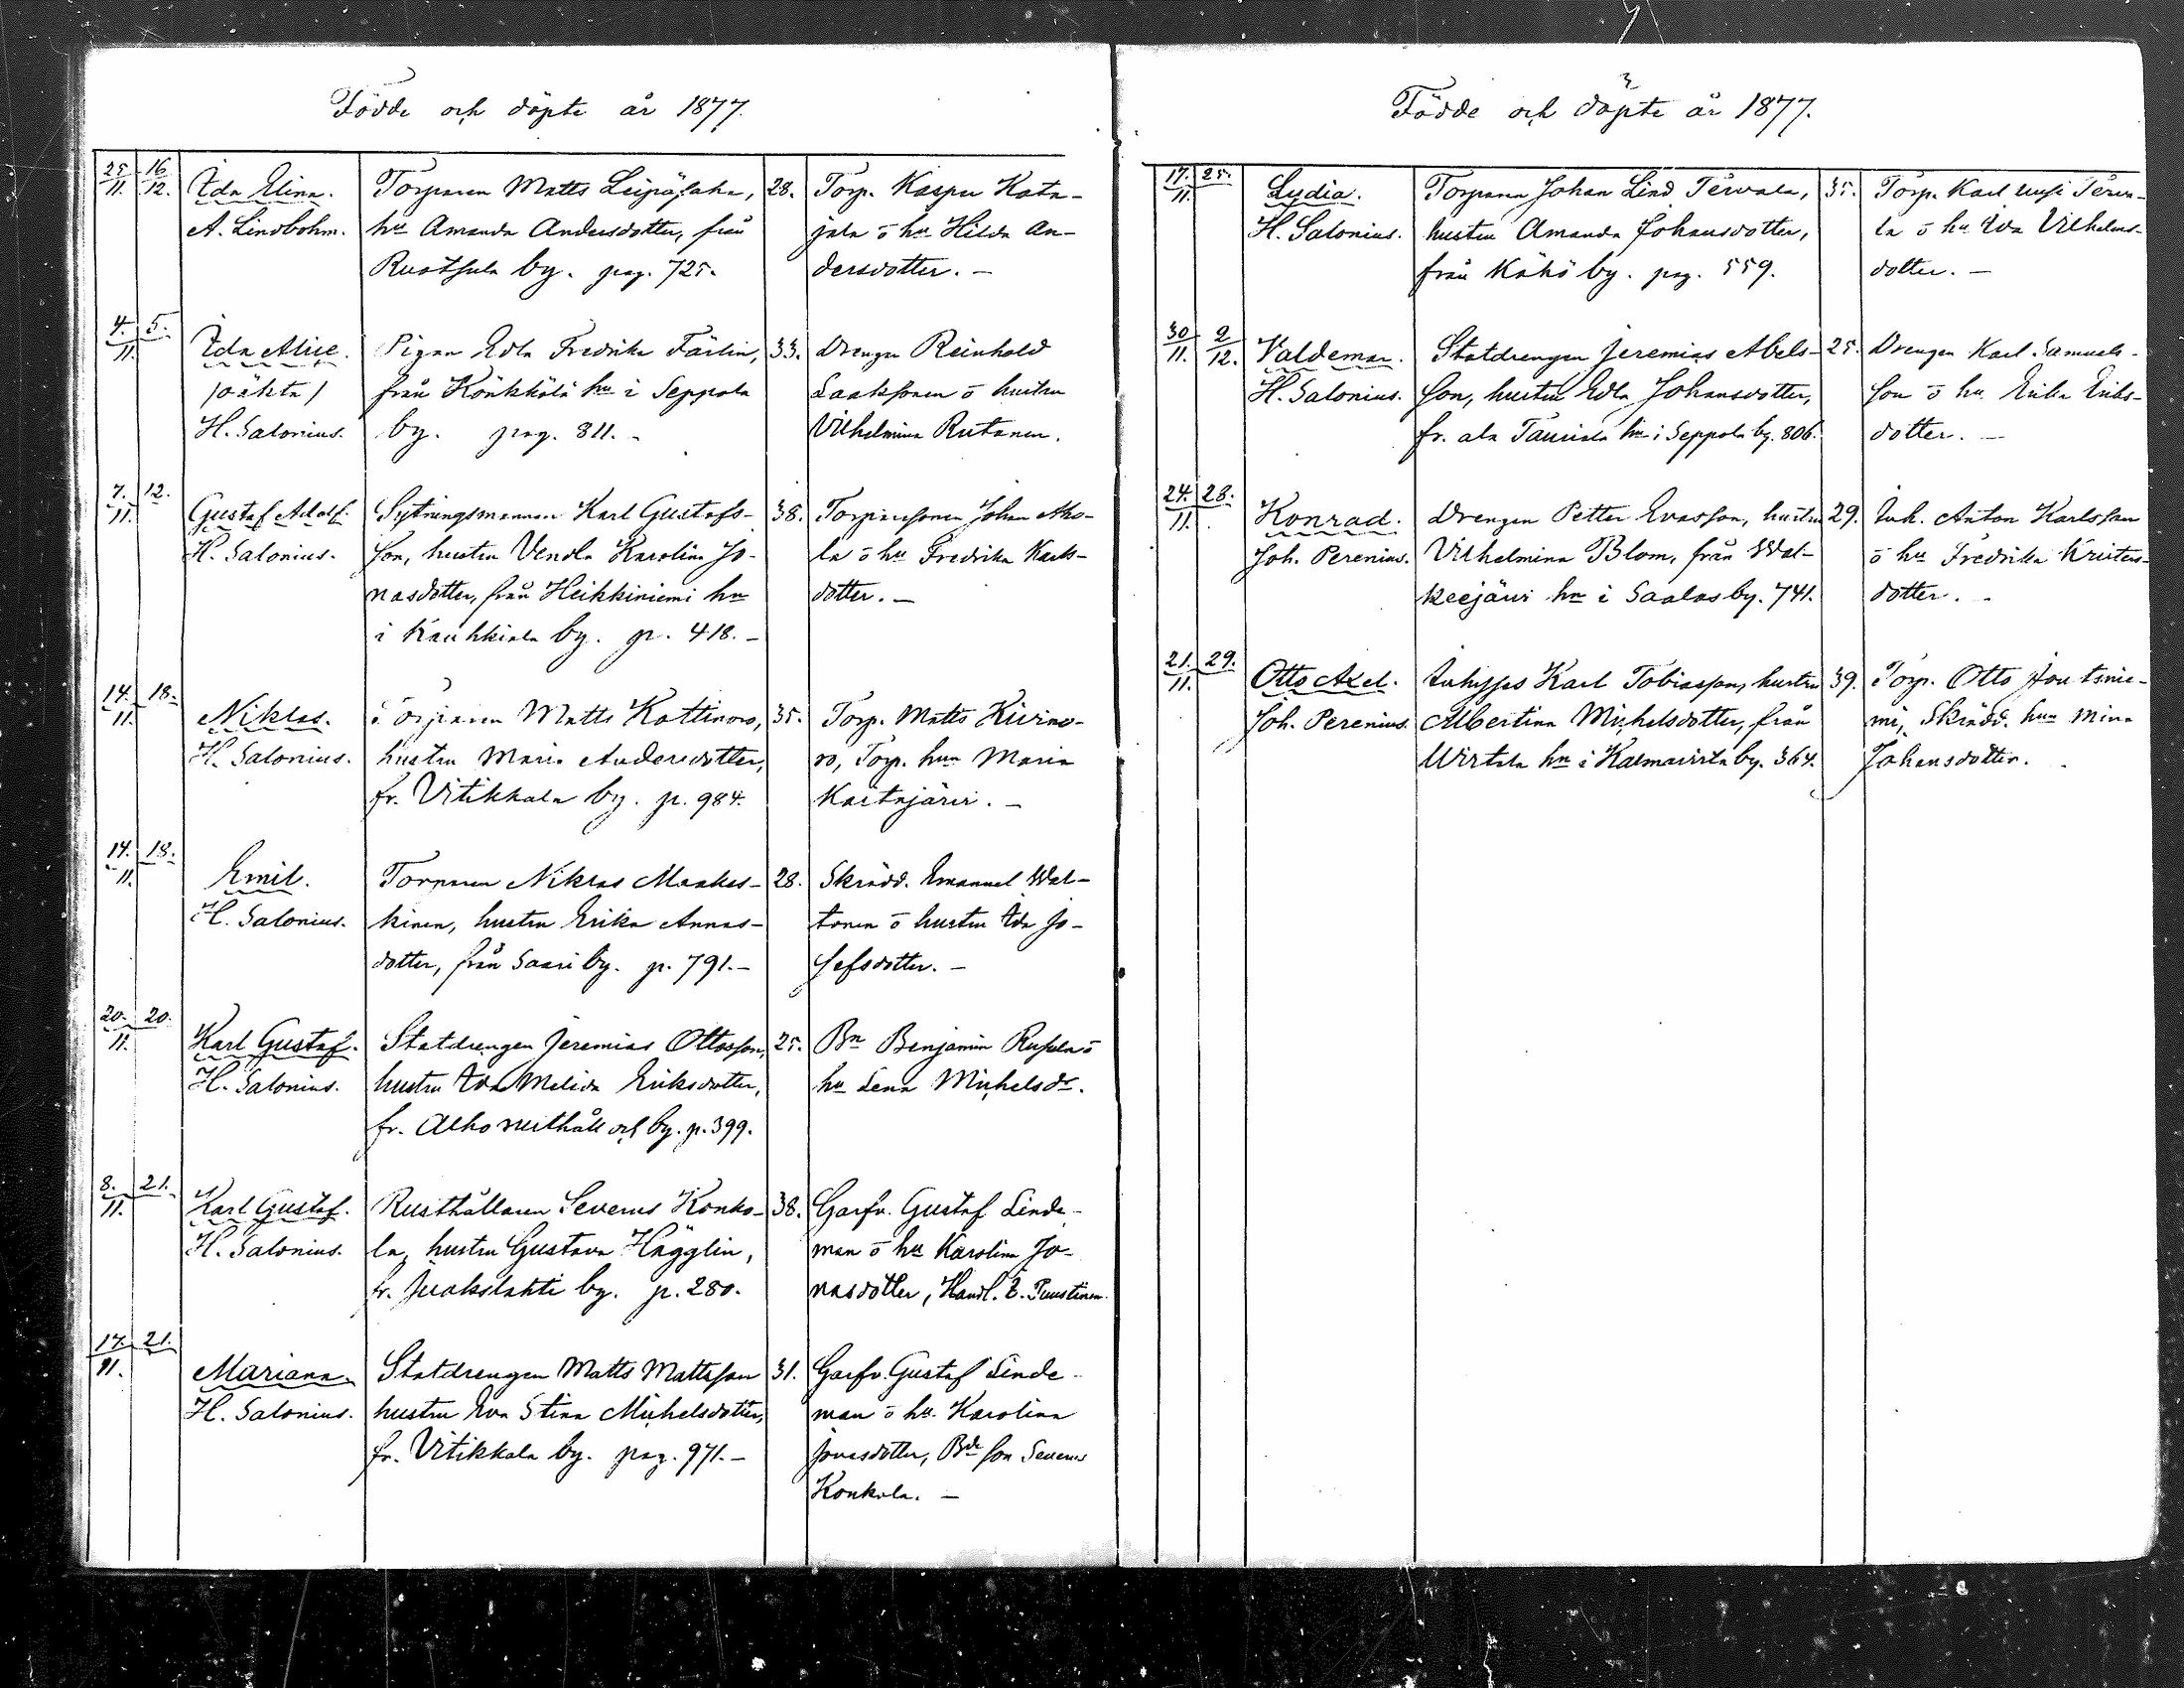 Födde och döpte år 1877.
25. 16.
11. 12.
Ida Elina.
A. Lindbohm.
Torparen Matts Leipäsaha,
hu Amanda Andersdotter, från
Ruotsula by. pag. 725.
28.
Torp. Kasper Kata-
jala o hu Hilda An-
dersdotter. —
4. 5.
11.
Ida Alice.
/oäkta/
H. Salonius.
Pigan Edla Fredrika Färlin,
från Könkkölä hn i Seppola
by. pag. 811. -
33.
Drengen Reinhold
Laaksonen o hustru
Vilhelmina Rutanen.
7. 12.
11.
Gustaf Adolf.
H. Salonius.
Sytningsmannen Karl Gustafs-
son, hustru Vendla Karolina Jo-
nasdotter, från Heikkiniemi hn
i Kauhkiala by. p. 418. -
38.
Torparesonen Johan Aho-
la o hu Fredrika Karls-
dotter. —
14. 18.
11.
Niklas.
H. Salonius.
Torparen Matts Kattinoro,
hustru Maria Andersdotter,
fr. Vitikkala by. p. 984.
35.
Torp. Matts Kivino-
ro, Torp. hun Maria
Kaitajärvi. —
14. 18.
11.
Emil.
H. Salonius.
Torparen Niklas Maakes-
kinen, hustru Erika Annas-
dotter, från Saari by. p. 791. —
28.
Skrädd. Emanuel Wal-
tonen o hustru Ida Jo-
sefsdotter. —
20. 20.
11.
Karl Gustaf.
H. Salonius.
Statdrengen Jeremias Ottosson,
hustru Ida Melida Eriksdotter,
fr. Alho rusthåll och by. p. 399.
25.
Bn Benjamin o
hu Lena Michelsdr.
8. 21.
11.
Karl Gustaf.
H. Salonius.
Rusthållaren Severus Konko-
la, hustru Gustava Hägglin,
fr. Juokslahti by. p. 280.
38.
Garfv. Gustaf Linde-
man o hu Karolina Jo-
nasdotter, Handl. E. Puustinen.
17. 21.
11.
Mariana.
H. Salonius.
Statdrengen Matts Mattsson
hustru Eva Stina Michelsdotter,
fr. Vitikkala by. pag. 971. —
31.
Garfv. Gustaf Linde-
man o hu. Karolina
Jonasdotter, Bde son Severus
Konkola. —
Födde och döpte år 1877.
17. 25.
11.
Lydia.
H. Salonius.
Torparen Johan Lind Tervala,
hustru Amanda Johansdotter,
från Kähö by. pag. 559.
35.
Torp. Karl Uusi Terva-
la o hu Eva Vilhelms-
dotter. —
30 2
11. 12.
Valdemar.
H. Salonius.
Statdrengen Jeremias Abels-
son, hustru Edla Johansdotter,
fr. ala Taurula hn i Seppola by. 806.
25.
Drengen Karl Samuels-
son o hu. Erika Eriks-
dotter. —
24. 28.
11.
Konrad.
Joh. Perenius.
Drengen Petter Evasson, hustru
Vilhelmina Blom, från Wal-
keejärvi hn i Saalas by. 741.
29.
Inh. Anton Karlsson
o hu Fredrika Kristers-
dotter. -
21. 29.
11.
Otto Axel.
Joh. Perenius.
Inhyses Karl Tobiasson, hustru
Albertina Michelsdotter, från
Wirtala hn i Kalmavirta by. 364.
39.
Torp. Otto Joutsnie-
mi, Skrädd. hun Mina
Johansdotter.